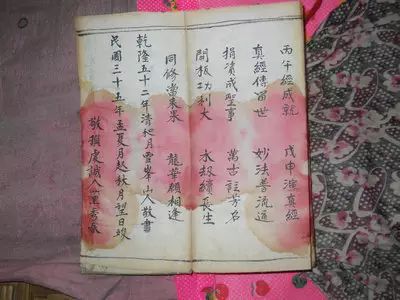 丙午經成就 戊申渡真經
真經傳留世 妙法普流通
捐資成聖事 萬古註芳名
開板功利大 永續長生
同修當來 龍華願相逢
乾隆五十二年清和月雪峯山人敬書
民國三十五年孟夏月起秋月望日竣
敬誠人秀